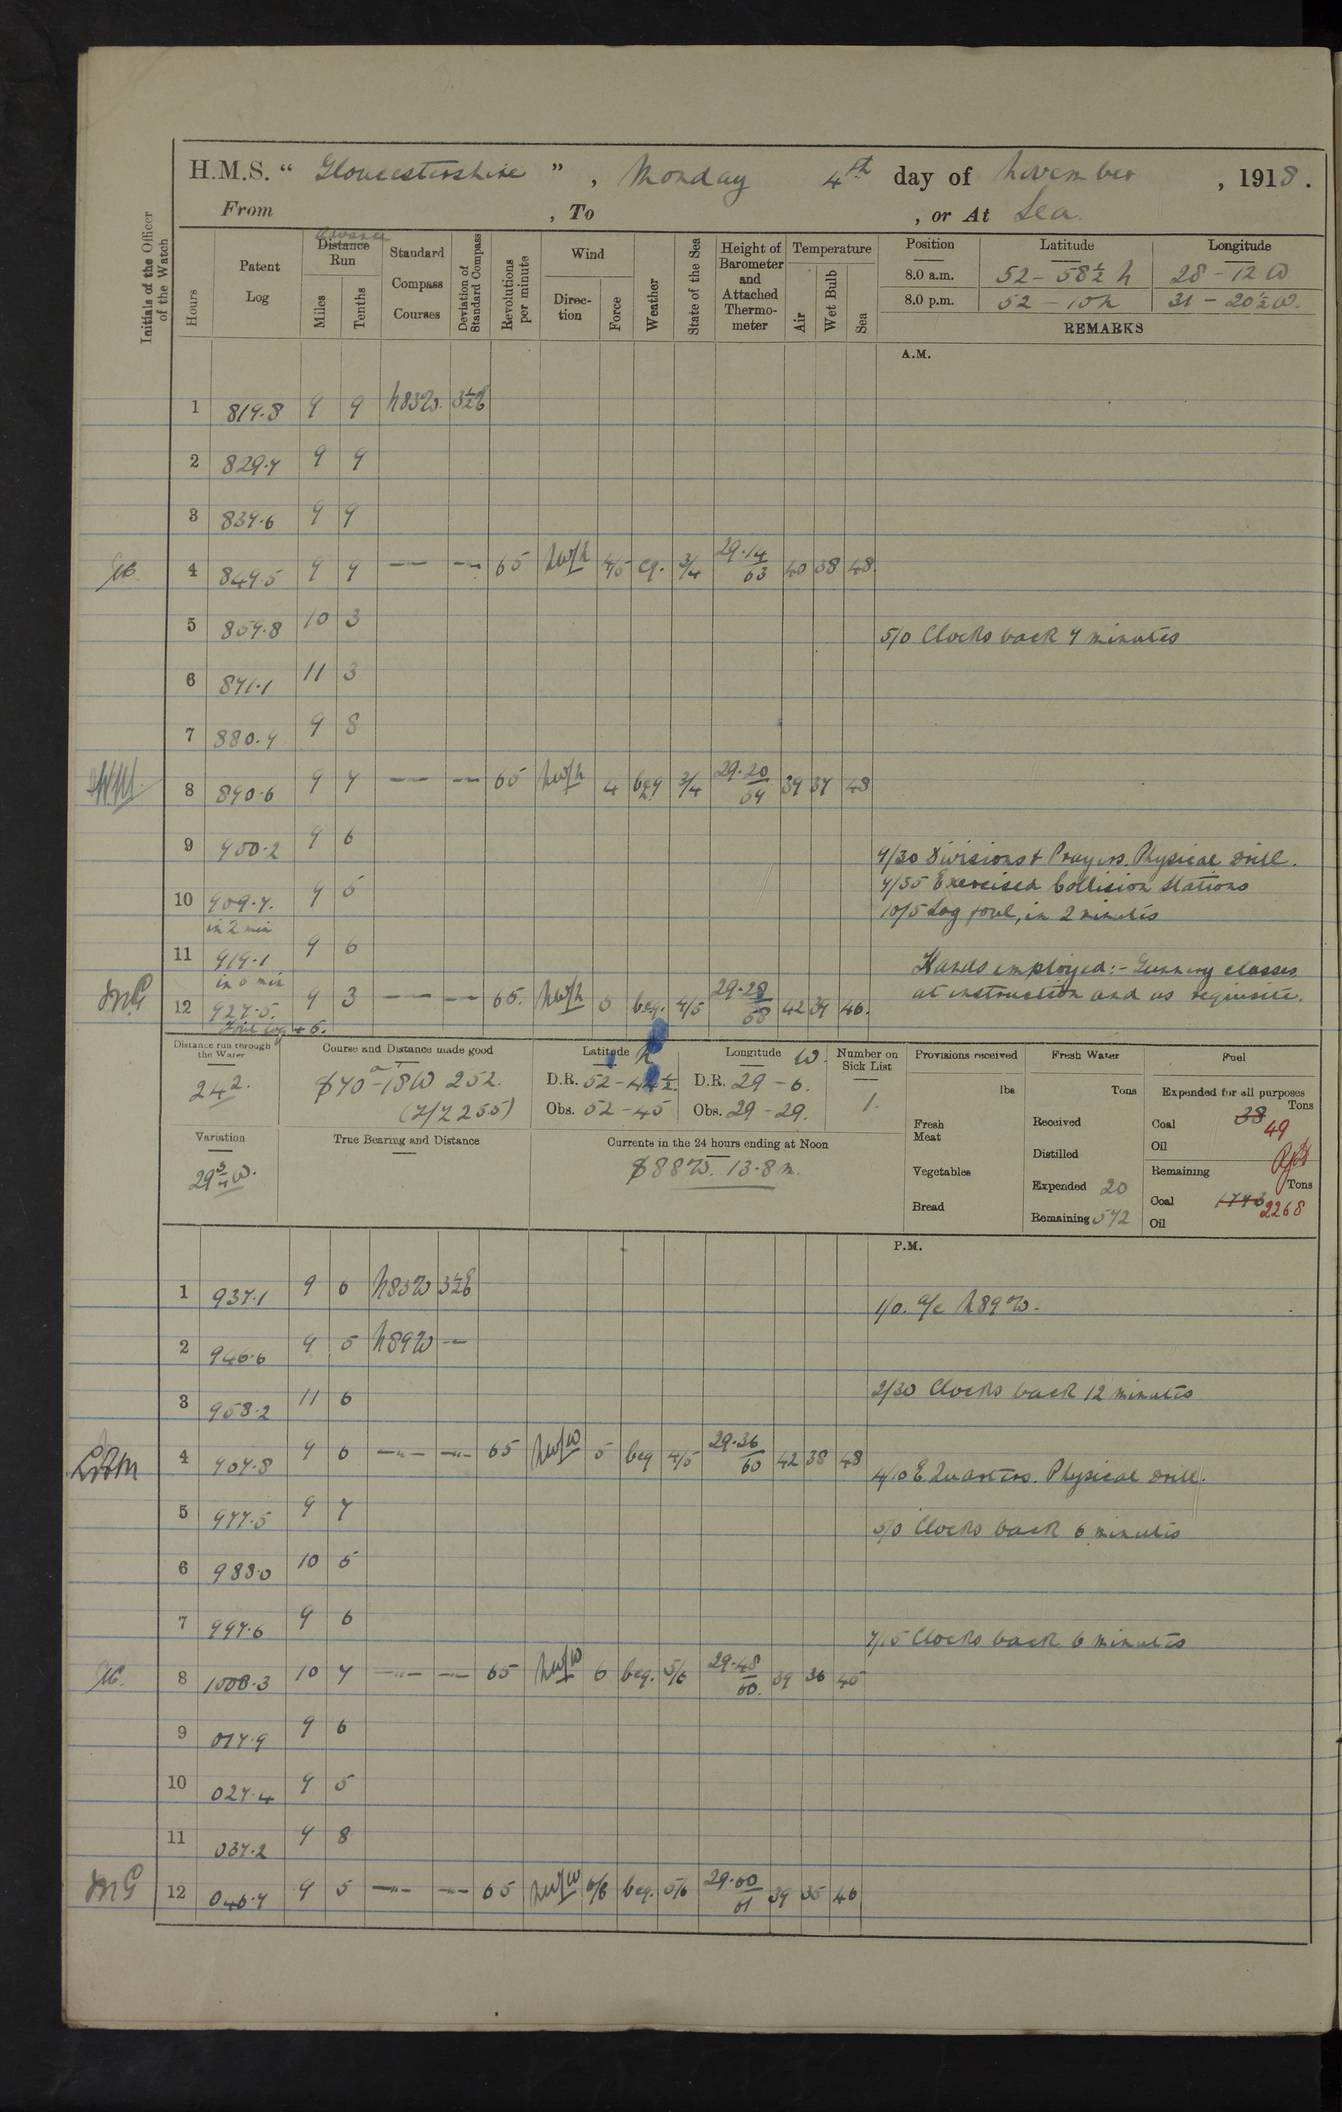 H.M.S. “ Gloucestershire ” , Monday 4th day of November , 1918.
From , To , or At Sea
Initials of the Officer of the Watch
Hours
Patent Log
Distance Run
Miles
Tenths
Standard Compass Courses
Deviation of Standard Compass
Revolutions per minute
Wind
Direc-tion
Force
Weather
State of the Sea
Height of Barometer and Attached Thermo-meter
Temperature
Air
Wet Bulb
Sea
Position Latitude Longitude
8.0 a.m. 52 – 58½ N 28 – 12 W
8.0 p.m. 52 – 10 N 31 – 20½ W.
REMARKS
A.M.
1 819.8 9 9 N83W. 3½E
2 829.7 9 9
3 839.6 9 9
4 849.5 9 9 — — 65 NW/N 4/5 cq. 3/4 29.14/63 40 38 48
5 859.8 10 3
5/0 Clocks back 9 minutes
6 871.1 11 3
7 880.9 9 8
8 890.6 9 7 — — 65 NW/N 4 3/4 29.20/59 39 37 48
9 900.2 9 6
9/30 Divisions & Prayers. Physical Drill.
9/35 Exercised Collision Stations
10 909.7. 9 5
10/5 Log foul, in 2 minutes
in 2 min
11 919.1 9 6
Hands employed:- Gunnery classes
12 927.5. 9 3 — — 65. NW/N 5 bcq. 4/5 29.28/58 42 39 46.
at instruction and as requisite.
Distance run through the Water
242.
Course and Distance made good
S70-18W 252.
(Z/Z 255)
Latitude N
D.R. 52 – 44½
Obs. 52 – 45
Longitude W.
D.R. 29 – 6.
Obs. 29 – 29.
Number on Sick List
1.
Provisions received
lbs
Fresh Meat
Vegetables
Bread
Fresh Water
Tons
Received
Distilled
Expended 20
Remaining 572
Fuel
Expended for all purposes
Tons
Coal 38 49
Oil
Remaining
Tons
Coal 1743 2268
Oil
Variation
29¾W.
True Bearing and Distance
Currents in the 24 hours ending at Noon
S88W. 13.8 m.
P.M.
1 937.1 9 6 N83W 3½E
1/0. a/c N89W.
2 946.6 9 5 N89W —
2/30 Clocks back 12 minutes
3 958.2 11 6
4 967.8 9 6 —"— —"— 65 NW/W 5 bcq 4/5 29.36/60 42 38 48
4/10 E. Quarters. Physical Drill.
5 977.5 9 7
5/0 Clocks back 6 minutes
6 988.0 10 5
7 997.6 9 6
7/15 Clocks back 6 minutes
8 1008.3 10 7 —"— —"— 65 NW/W 6 bcq. 5/6 29.48/60. 39 36 45
9 017.9 9 6
10 027.4 9 5
11 037.2 9 8
12 046.7 9 5 —"— —"— 65 NW/W bcq. 5/6 29.60/61 39 35 46